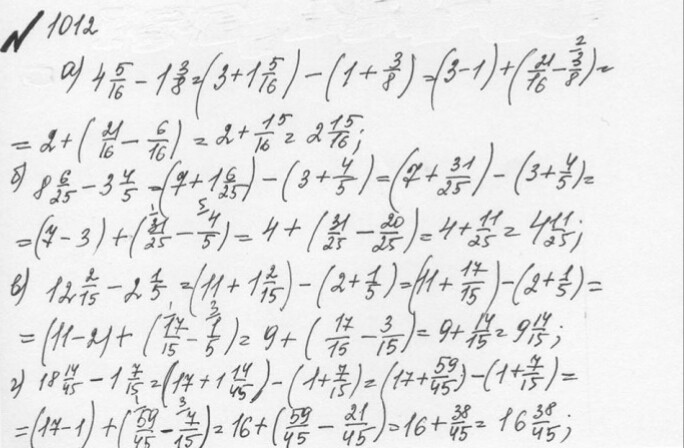 № 1012
а) 4 5/16 - 1 3/8 = (3 + 1 5/16) - (1 + 3/8) = (3 - 1) + (21/16 - 3/8) =
= 2 + (21/16 - 6/16) = 2 + 15/16 = 2 15/16;
б) 8 6/25 - 3 4/5 = (7 + 1 6/25) - (3 + 4/5) = (7 + 31/25) - (3 + 4/5) =
= (7 - 3) + (31/25 - 4/5) = 4 + (31/25 - 20/25) = 4 + 11/25 = 4 11/25;
в) 12 2/15 - 2 1/5 = (11 + 1 2/15) - (2 + 1/5) = (11 + 17/15) - (2 + 1/5) =
= (11 - 2) + (17/15 - 1/5) = 9 + (17/15 - 3/15) = 9 + 14/15 = 9 14/15;
г) 18 14/45 - 1 7/15 = (17 + 1 14/45) - (1 + 7/15) = (17 + 59/45) - (1 + 7/15) =
= (17 - 1) + (59/45 - 7/15) = 16 + (59/45 - 21/45) = 16 + 38/45 = 16 38/45;